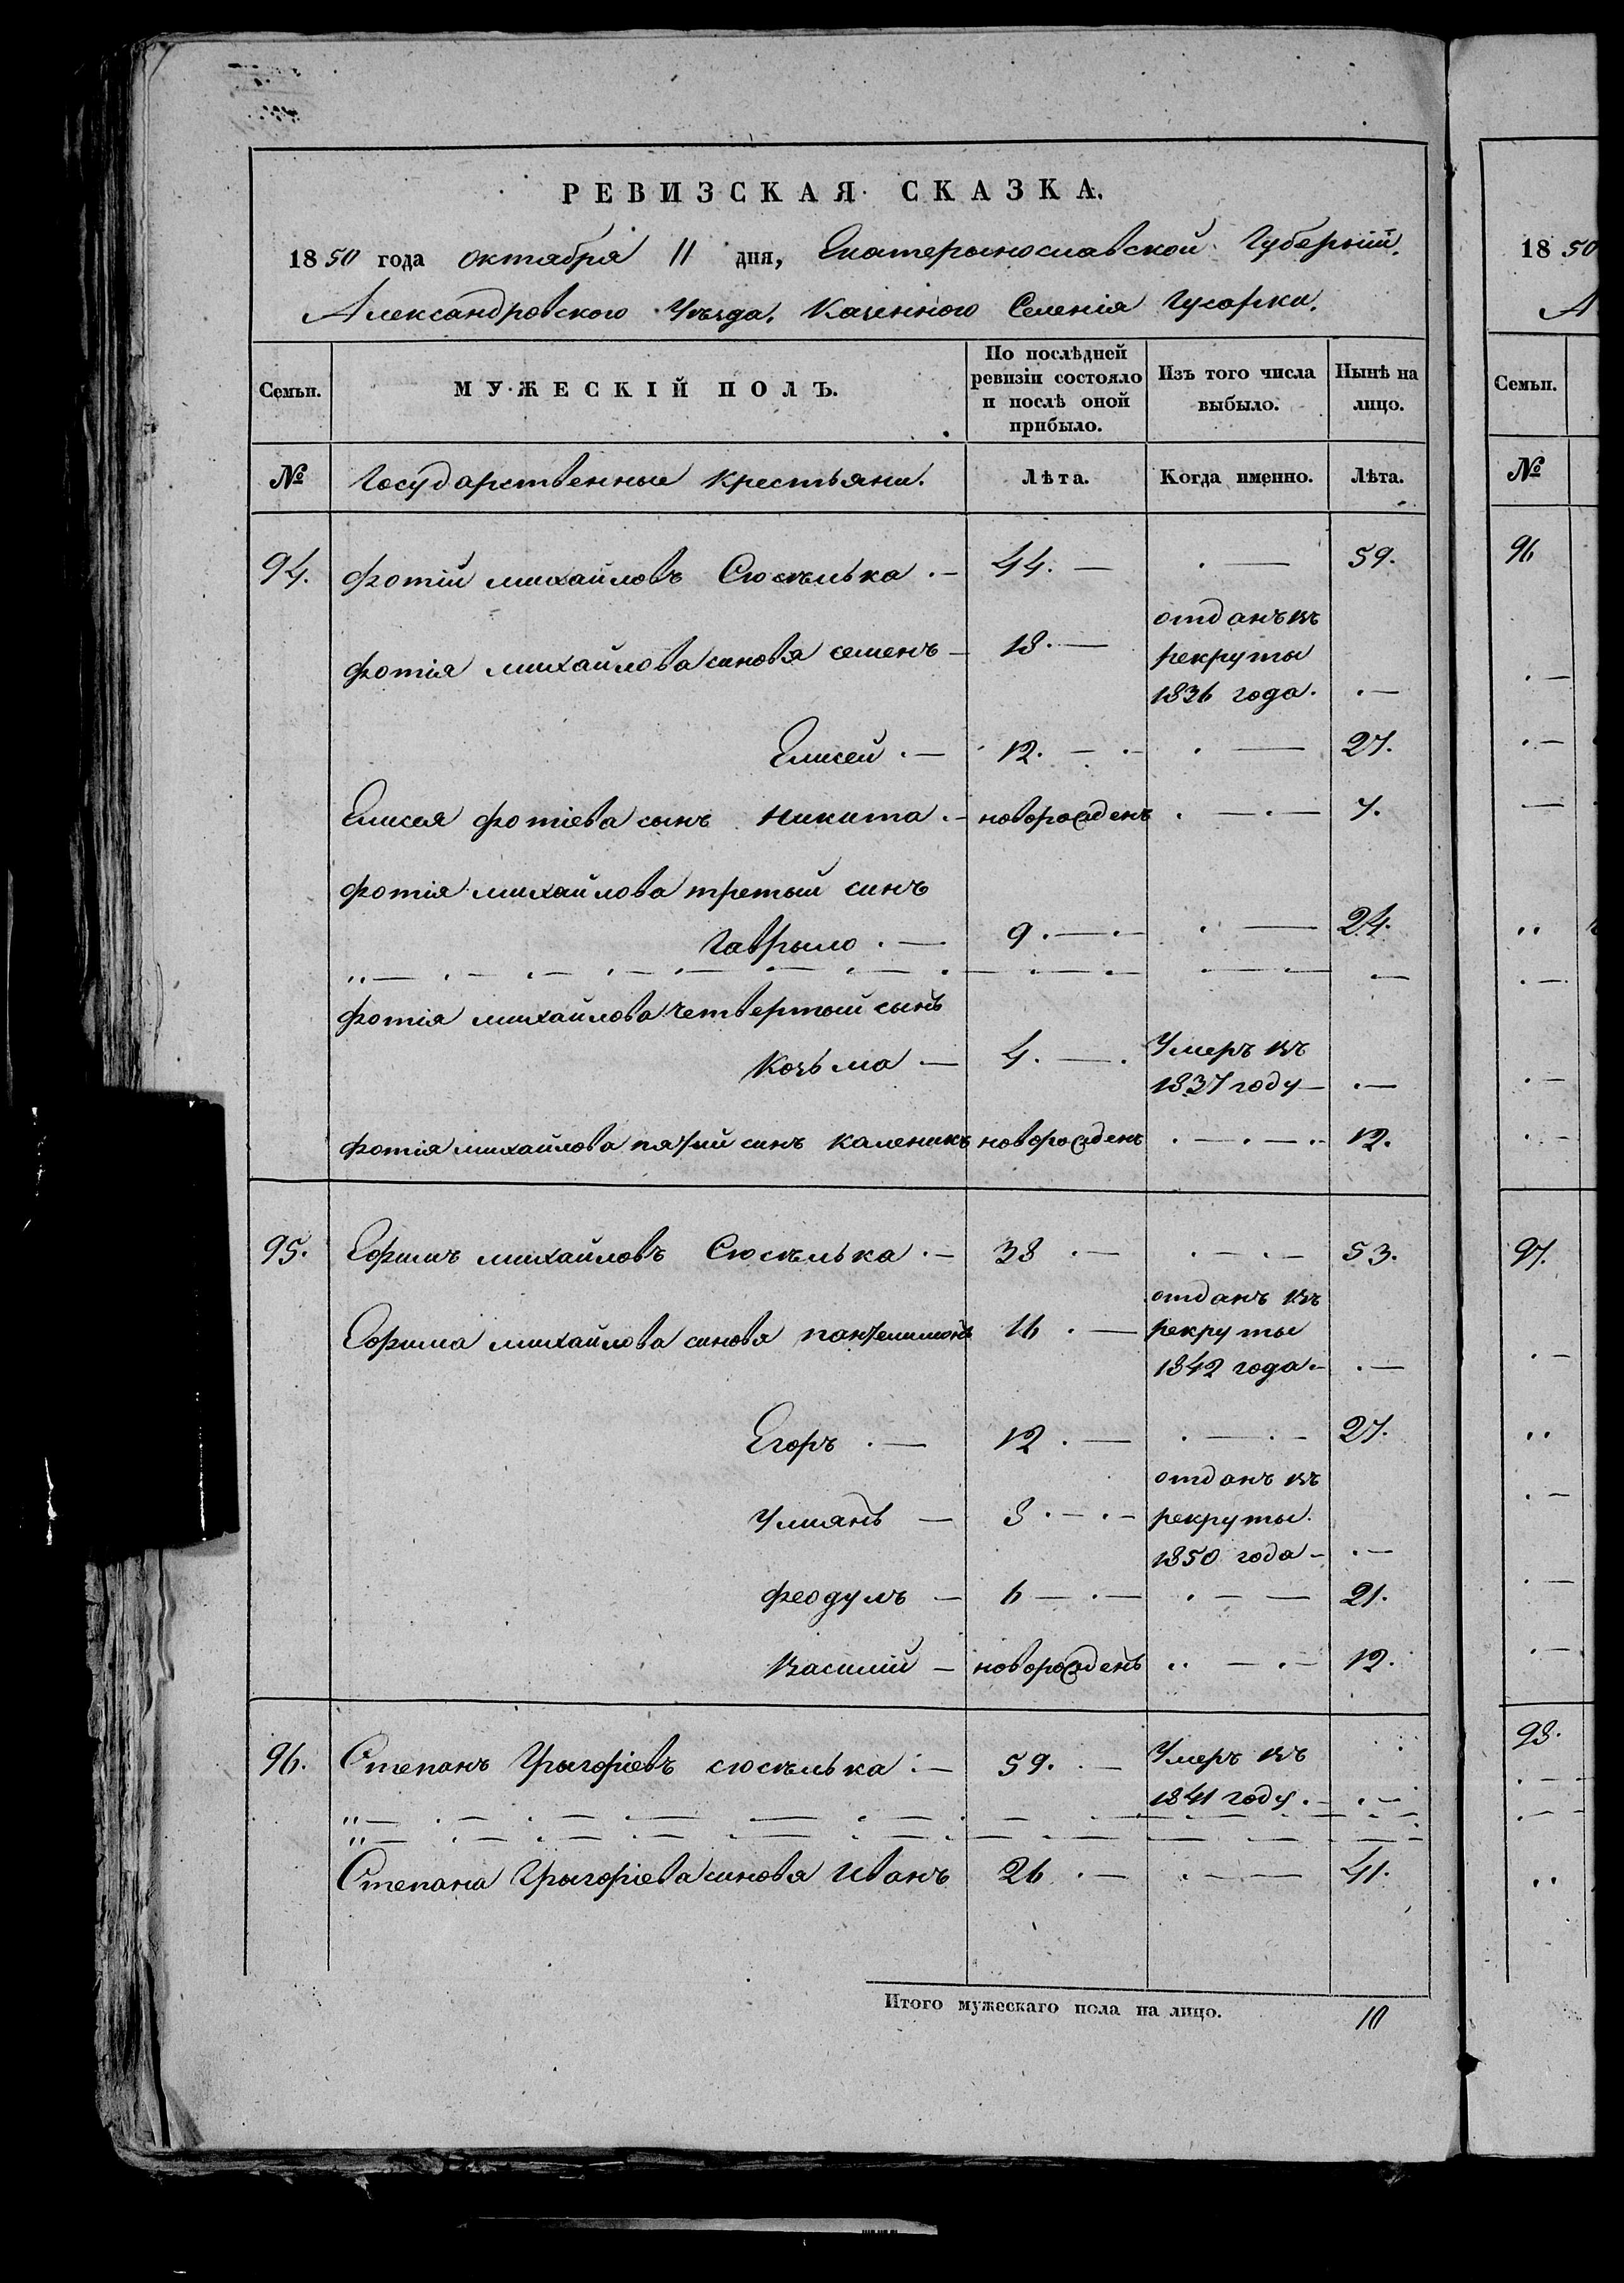 РЕВИЗСКАЯ СКАЗКА.
1850 года октября 11 дня, Екатерынославской Губерніи.
Александровского Уѣзда. Казенного Селенія Гусарки.
Семьи. МУЖЕСКІЙ ПОЛЪ. По послѣдней ревизіи состояло и послѣ оной прибыло. Изъ того числа выбыло. Нынѣ на лицо.
№ Государственные крестьяни. Лѣта. Когда именно. Лѣта.
94. Фотій михайловъ Сюсѣлька 44. 59.
фотія михайлова синовя семенъ 18. отданъ въ рекруты 1836 года.
Елисей 12. 27.
Елисея фотіева сынъ никита новорожденъ 7.
фотія михайлова третый синъ
Гаврыло 9. 24.
фотія михайлова четвертый сынъ
Козьма 4. Умеръ въ 1837 году
фотія михайлова пятый синъ каленикъ новорожденъ 12.
95. Ефимъ михайловъ Сюсѣлька 38 53.
Ефима михайлова синовя пантелимонъ 16 отданъ въ рекруты 1842 года
Егоръ 12 27.
Улиянъ 8 отданъ въ рекруты. 1850 года
феодулъ 6 21.
Василій новорожденъ 12.
96. Степанъ Грыгоріевъ сюсѣлька 59. Умеръ въ 1841 году.
Степана Грыгоріева синовя Иванъ 26 41.
Итого мужескаго пола на лицо. 10
1850
А
Семьи.
№
96
97.
98.